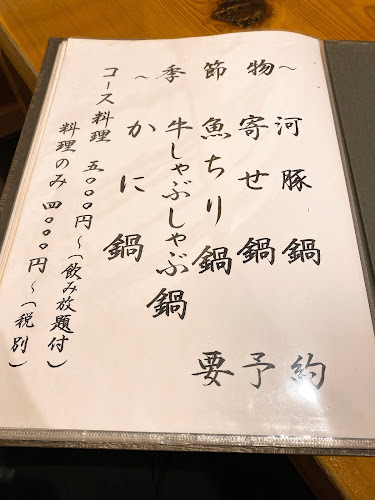 ～季節物～
河豚鍋
寄せ鍋
魚ちり鍋
牛しゃぶしゃぶ鍋
かに鍋
要予約
コース料理 五〇〇〇円～(飲み放題付)
料理のみ 四〇〇〇円～(税別)